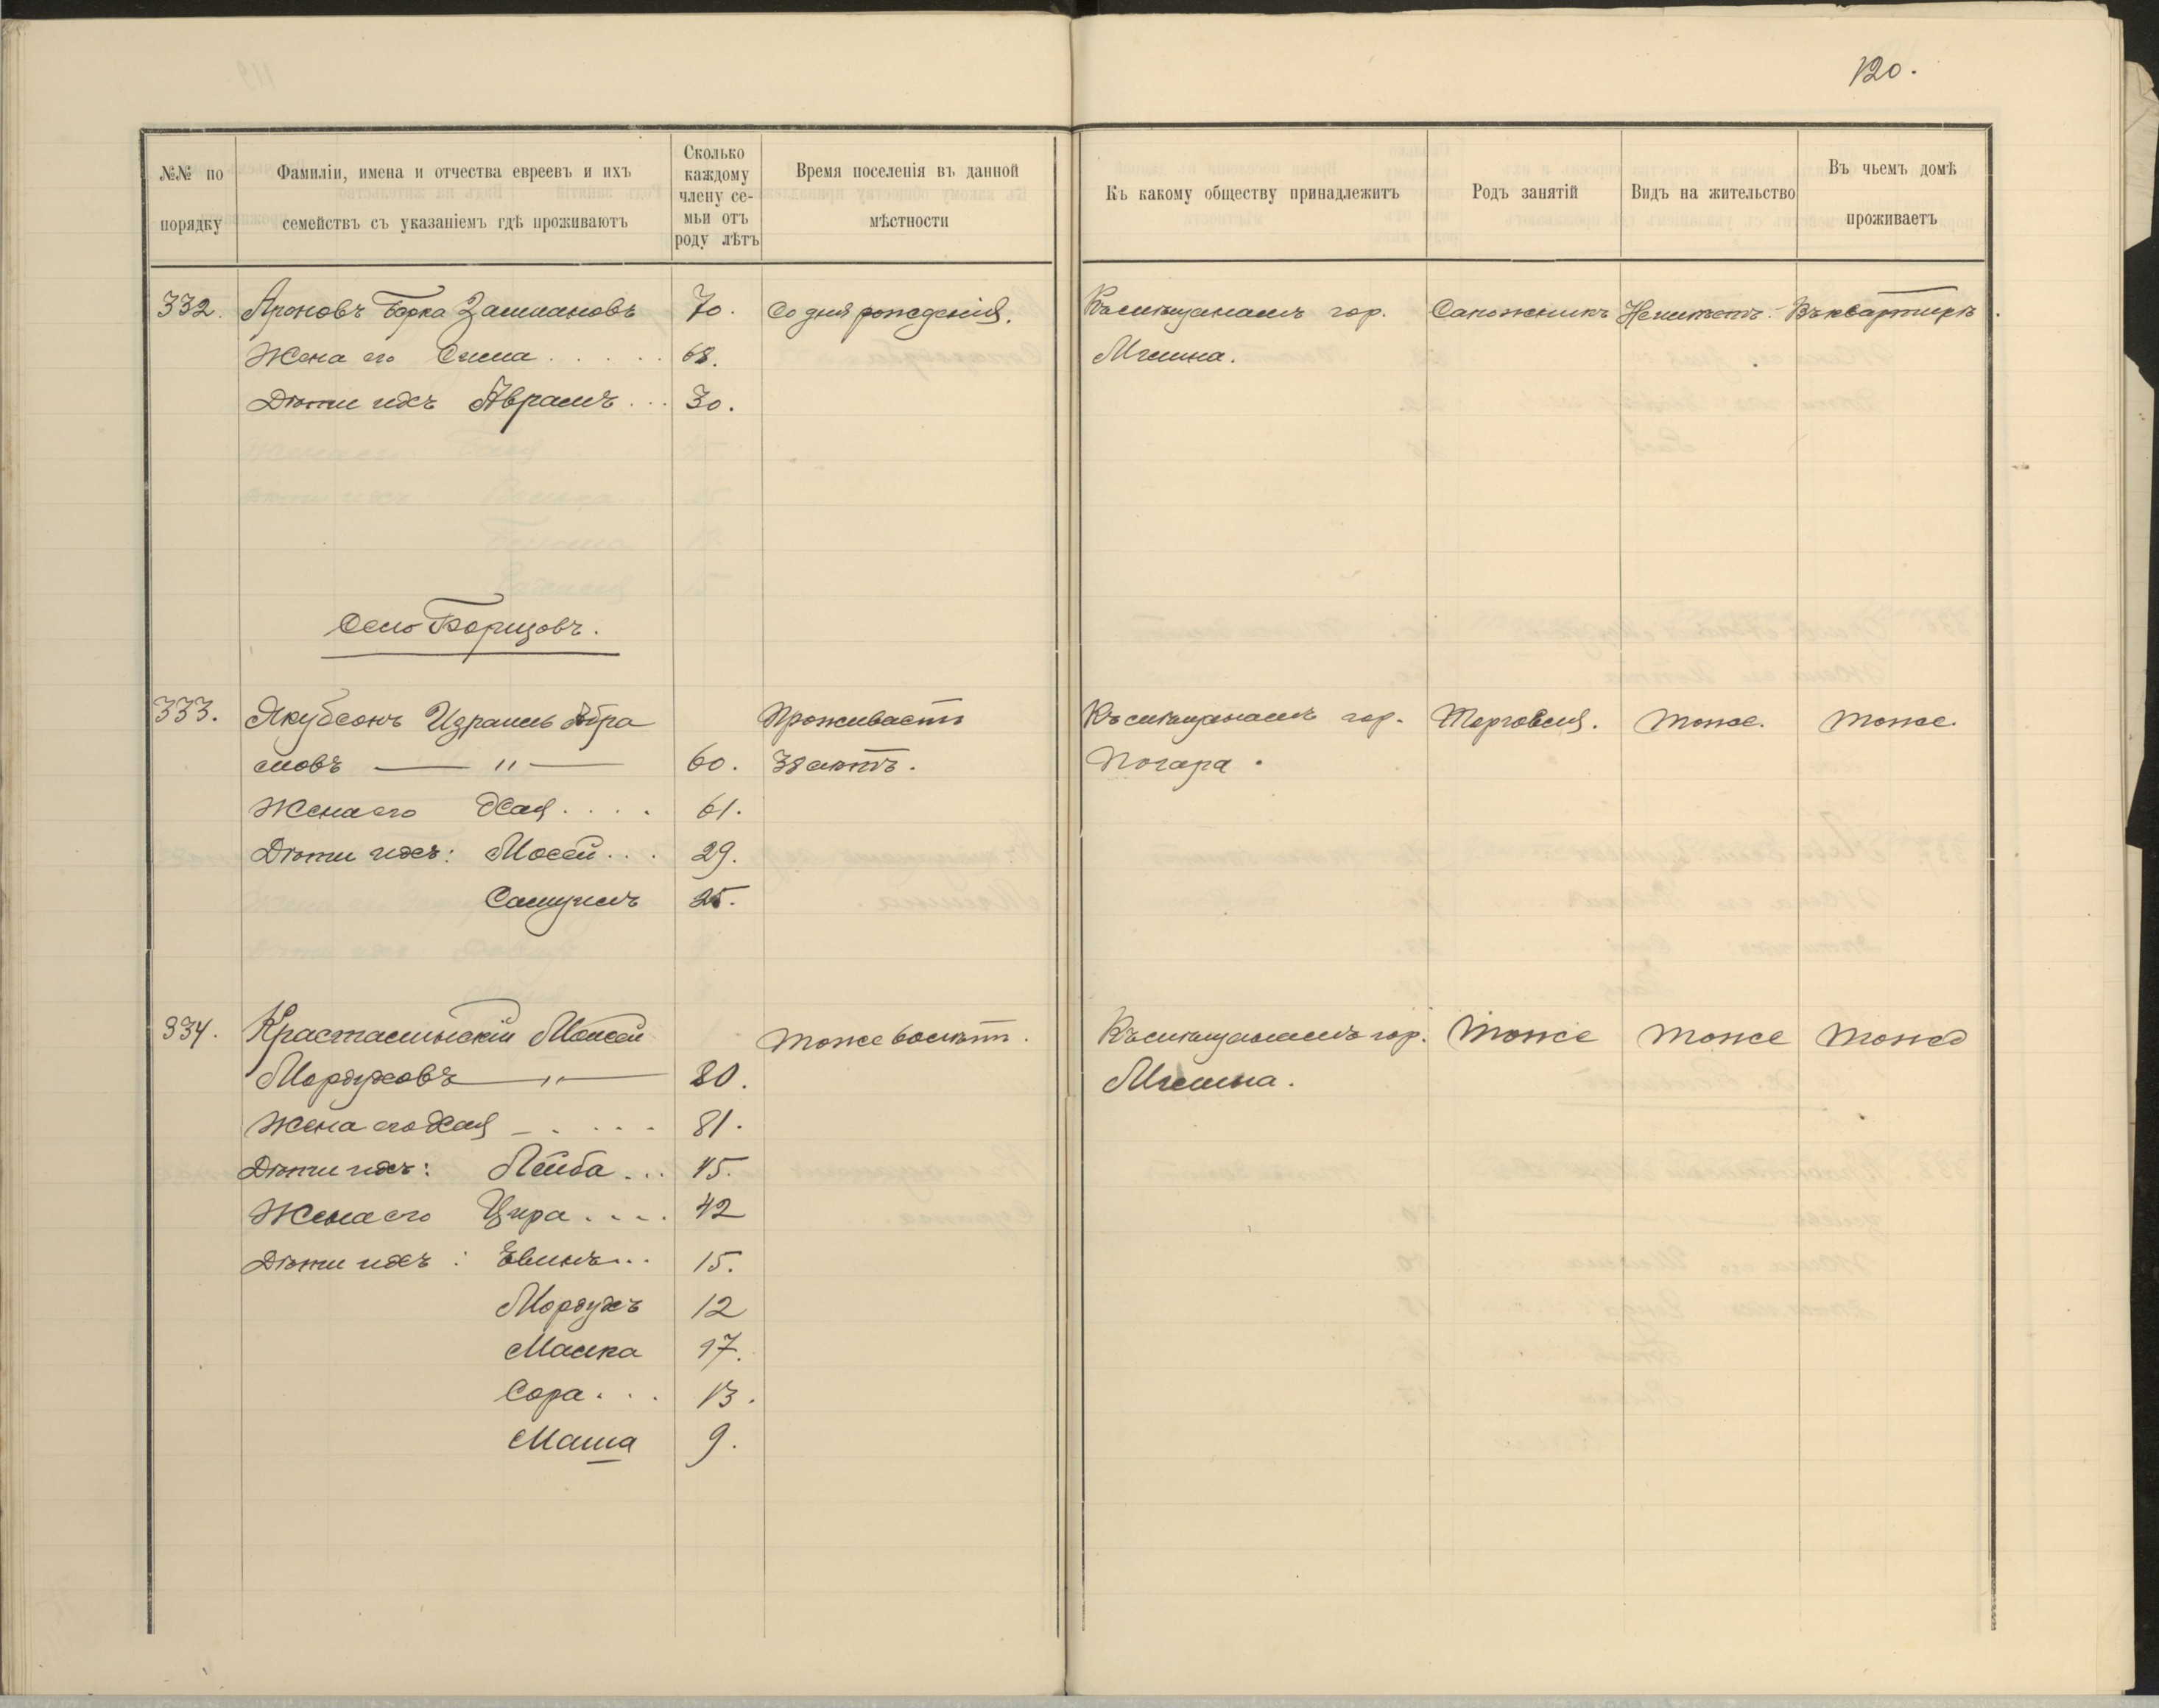 120.
№№ по порядку
Фамиліи, имена и отчества евреевъ и ихъ семействъ съ указаніемъ гдѣ проживаютъ
Сколько каждому члену семьи отъ роду лѣтъ
Время поселенія въ данной мѣстности
Къ какому обществу принадлежитъ
Родъ занятій
Видъ на жительство
Въ чьемъ домѣ проживаетъ
332. Ароновъ Борка Залмановъ 70. Со дня рожденія. Къ мѣщанамъ гор. Сапожникъ Неимѣетъ. Въ квартирѣ.
Жена его Сима . . . . . 68. Мглина.
Дѣти ихъ Абрамъ . . . 30.
Село Борщовъ.
333. Якубсонъ Израиль Абра Проживаетъ Къ мѣщанамъ гор. Торговля. Тоже. Тоже.
мовъ — " — 60. 38 лѣтъ. Погара.
Жена его Хая . . . . 61.
Дѣти ихъ: Мосей . . . 29.
Самуилъ 25.
334. Мовсей Тоже лѣтъ. Къ мѣщанамъ гор. Тоже Тоже Тоже
Мордуховъ — " — 80. Мглина.
Жена его Хая — . . . . 81.
Дѣти ихъ: Лейба . . . 45.
Жена его Цира . . . . 42
Дѣти ихъ: . . 15.
Мордухъ 12
Малка 17.
Сора . . . 13.
Маша 9.